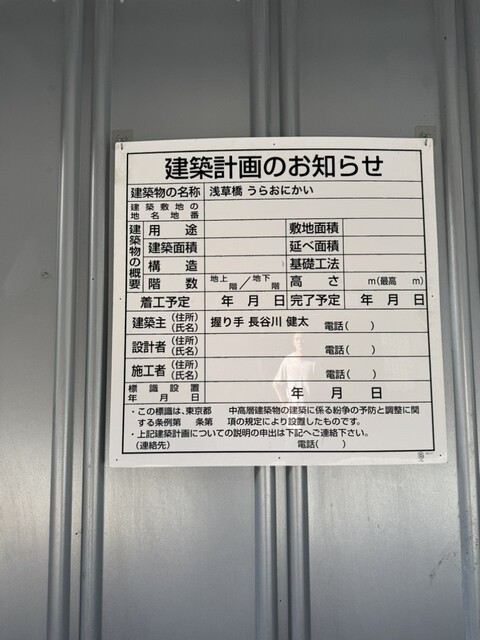 建築計画のお知らせ
建築物の名称 浅草橋 うらおにかい
建築敷地の地名地番
建築物の概要
用途 敷地面積
建築面積 延べ面積
構造 基礎工法
階数 地上 階/地下 階 高さ m(最高 m)
着工予定 年 月 日 完了予定 年 月 日
建築主 (住所)(氏名) 握り手 長谷川 健太 電話( )
設計者 (住所)(氏名) 電話( )
施工者 (住所)(氏名) 電話( )
標識設置年月日 年 月 日
・この標識は、東京都 中高層建築物の建築に係る紛争の予防と調整に関
する条例第 条第 項の規定により設置したものです。
・上記建築計画についての説明の申出は下記へご連絡下さい。
(連絡先) 電話( )